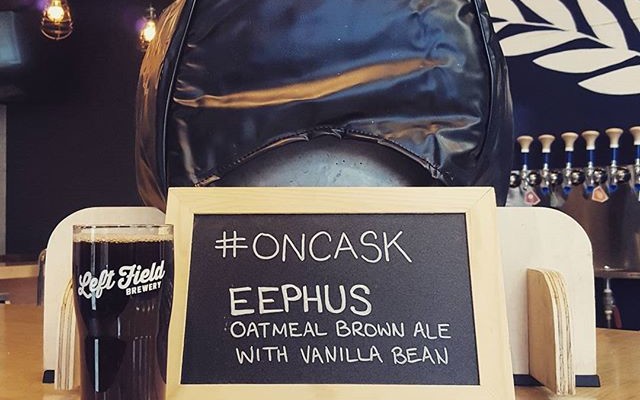 Left Field
BREWERY
#ONCASK
EEPHUS
OATMEAL BROWN ALE
WITH VANILLA BEAN